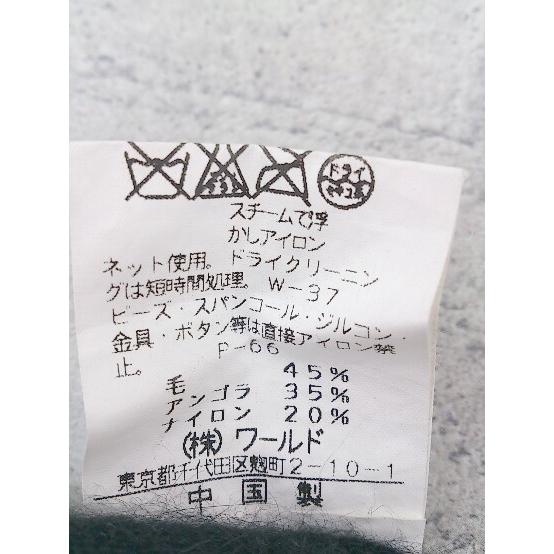 ドライ
セキユ系
スチームで浮
かしアイロン
ネット使用。ドライクリーニン
グは短時間処理。W-37
ビーズ・スパンコール・ジルコン・
金具・ボタン等は直接アイロン禁
止。P-66
毛 45%
アンゴラ 35%
ナイロン 20%
(株)ワールド
東京都千代田区麹町2-10-1
中国製